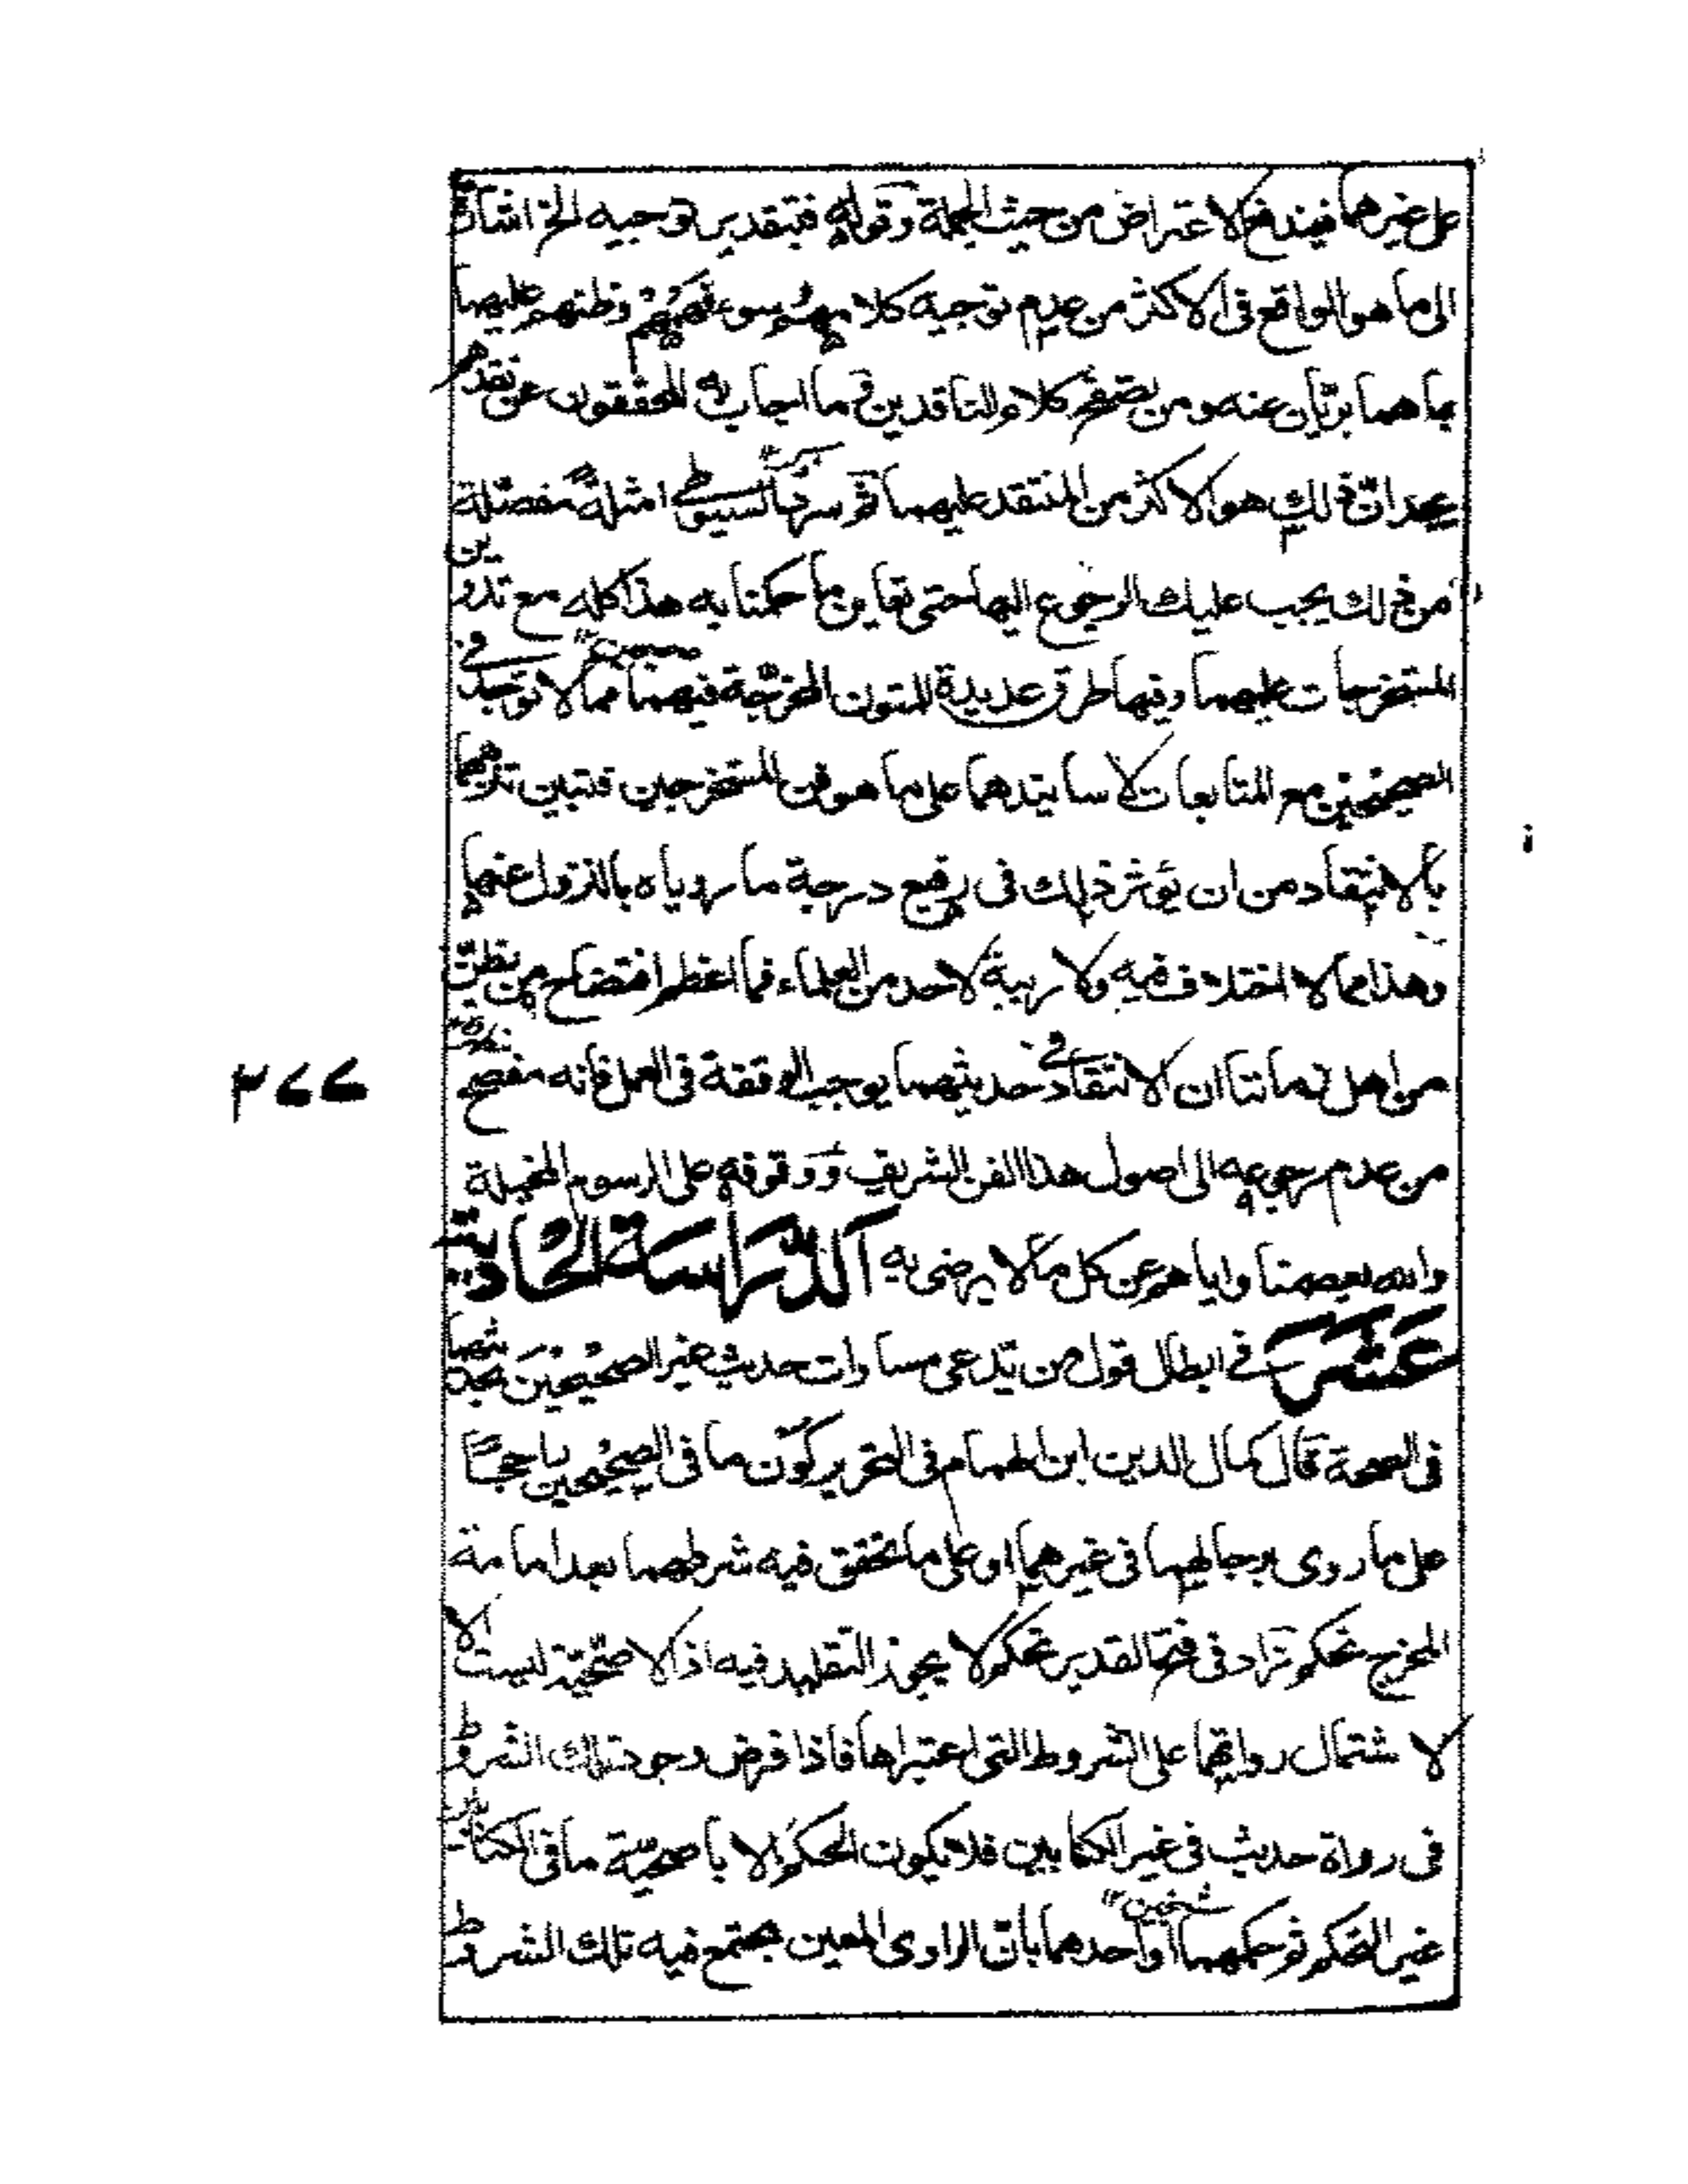 على غيرهما فيندفع الاعتراض من حيث الجملة وقوله فبتقدير توجيه الخ اشارة
الى ما هو الواقع فى الاكثر من عدم توجيه كلامهم سوء فهمهم وظنهم عليهما
بما هما بريّان عنه ومن تصفح كلام الناقدين و ما اجاب به المحققون عن نقدهم
يجد انّ ذلك هو الاكثر من المنتقد عليهما وقد سرد السيوطى امثلةً مفصّلة
من ذلك يجب عليك الرجوع اليها حتى تعاين ما حكمنا به هذا كله مع تدوين
المستخرجات عليهما وفيها طرق عديدة للمتون المخرّجة فيهما مما لا توجد فى
الصحيحين مع المتابعات لاسانيدهما على ما هو فن المستخرجين فتبين تنزههما
بالانتقاد من ان يؤثر ذلك فى رفيع درجة ما روياه بالنزول عنها
وهذا مما لا اختلاف فيه ولا ريبة لاحد من العلماء فما اعظم افتضاح من يظنّ
من اهل زماننا ان الانتقاد فى حديثهما يوجب الوقفة فى العمل فانه مفصح
من عدم رجوعه الى اصول هذا الفن الشريف ووقوفه على الرسوم المخيلة
والله يعصمنا واياهم عن كل ما لا يرضى به الدّراسة الحادية
عشر فى ابطال قول من يّدعى مساوات حديث غير الصحيحين بحديثهما
فى الصحة قال كمال الدين ابن الهمام فى التحرير كون ما فى الصحيحين راجحًا
على ما روى برجالهما فى غيرهما او على ما تحقق فيه شرطهما بعد امامة
المخرج تحكم وزاد فى فتح القدير تحكم لا يجوز التقليد فيه اذ الاصحّيّة ليست الا
لاشتمال رواتهما على الشروط التى اعتبراها فاذا فرض وجود تلك الشروط
فى رواة حديث فى غير الكتابين فلا يكون الحكم بالاصحيّة ما فى الكتابين
غير التحكم ثم حكمهما او احدهما بانّ الراوى المعين يجتمع فيه تلك الشروط
٣٧٧